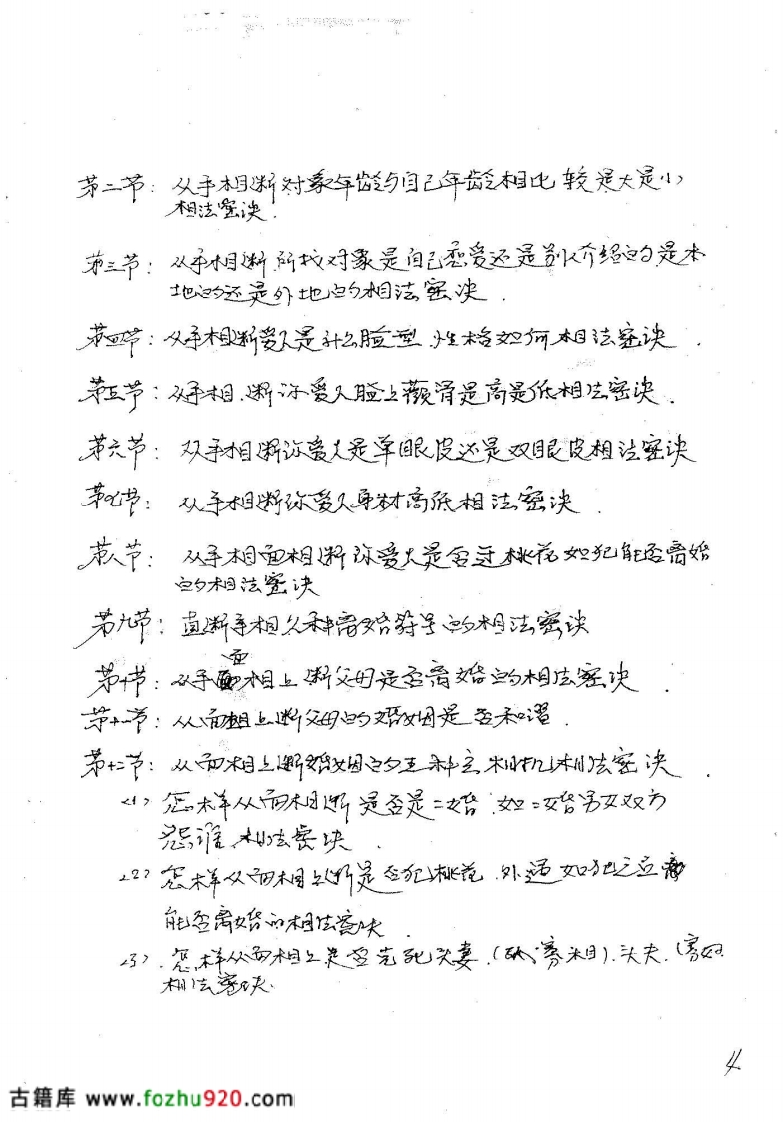 第二节：从手相断对象年龄与自己年龄相比较是大是小
相法密诀.
第三节：从手相断所找对象是自己恋爱还是别人介绍的是本
地的还是外地的相法密诀.
第四节：从手相断爱人是什么脸型.性格如何相法密诀.
第五节：从手相.断你爱人脸上颧骨是高是低相法密诀.
第六节：从手相断你爱人是单眼皮还是双眼皮相法密诀
第七节：从手相断你爱人身材高低相法密诀.
第八节：从手相面相断你爱人是否过桃花如犯能否离婚
的相法密诀
第九节：直断手相久种离婚符号的相法密诀
第十节：从手面相上断父母是否离婚的相法密诀.
第十一节：从面相上断父母的婚姻是否和谐.
第十二节：从面相上断婚姻的五种玄相机相法密诀.
<1>怎样从面相断是否是二婚.如二婚男女双方
怨谁.相法密诀.
<2>怎样从面相上断是否犯桃花.外遇如犯
能否离婚的相法密诀.
<3>.怎样从面相上是否克死头妻.(寡相).头夫.(寡妇
相法密诀.
4
古籍库 www.fozhu920.com